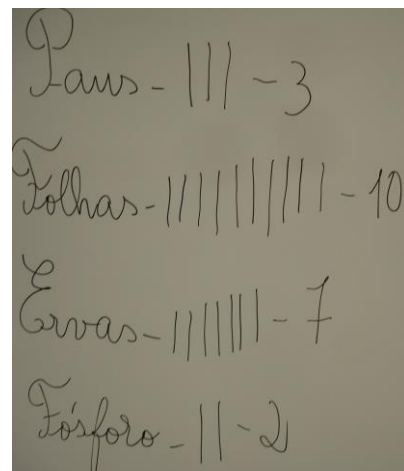 Paus - ||| - 3
Folhas - |||||||||| - 10
Ervas - ||||||| - 7
Fósforo - || - 2